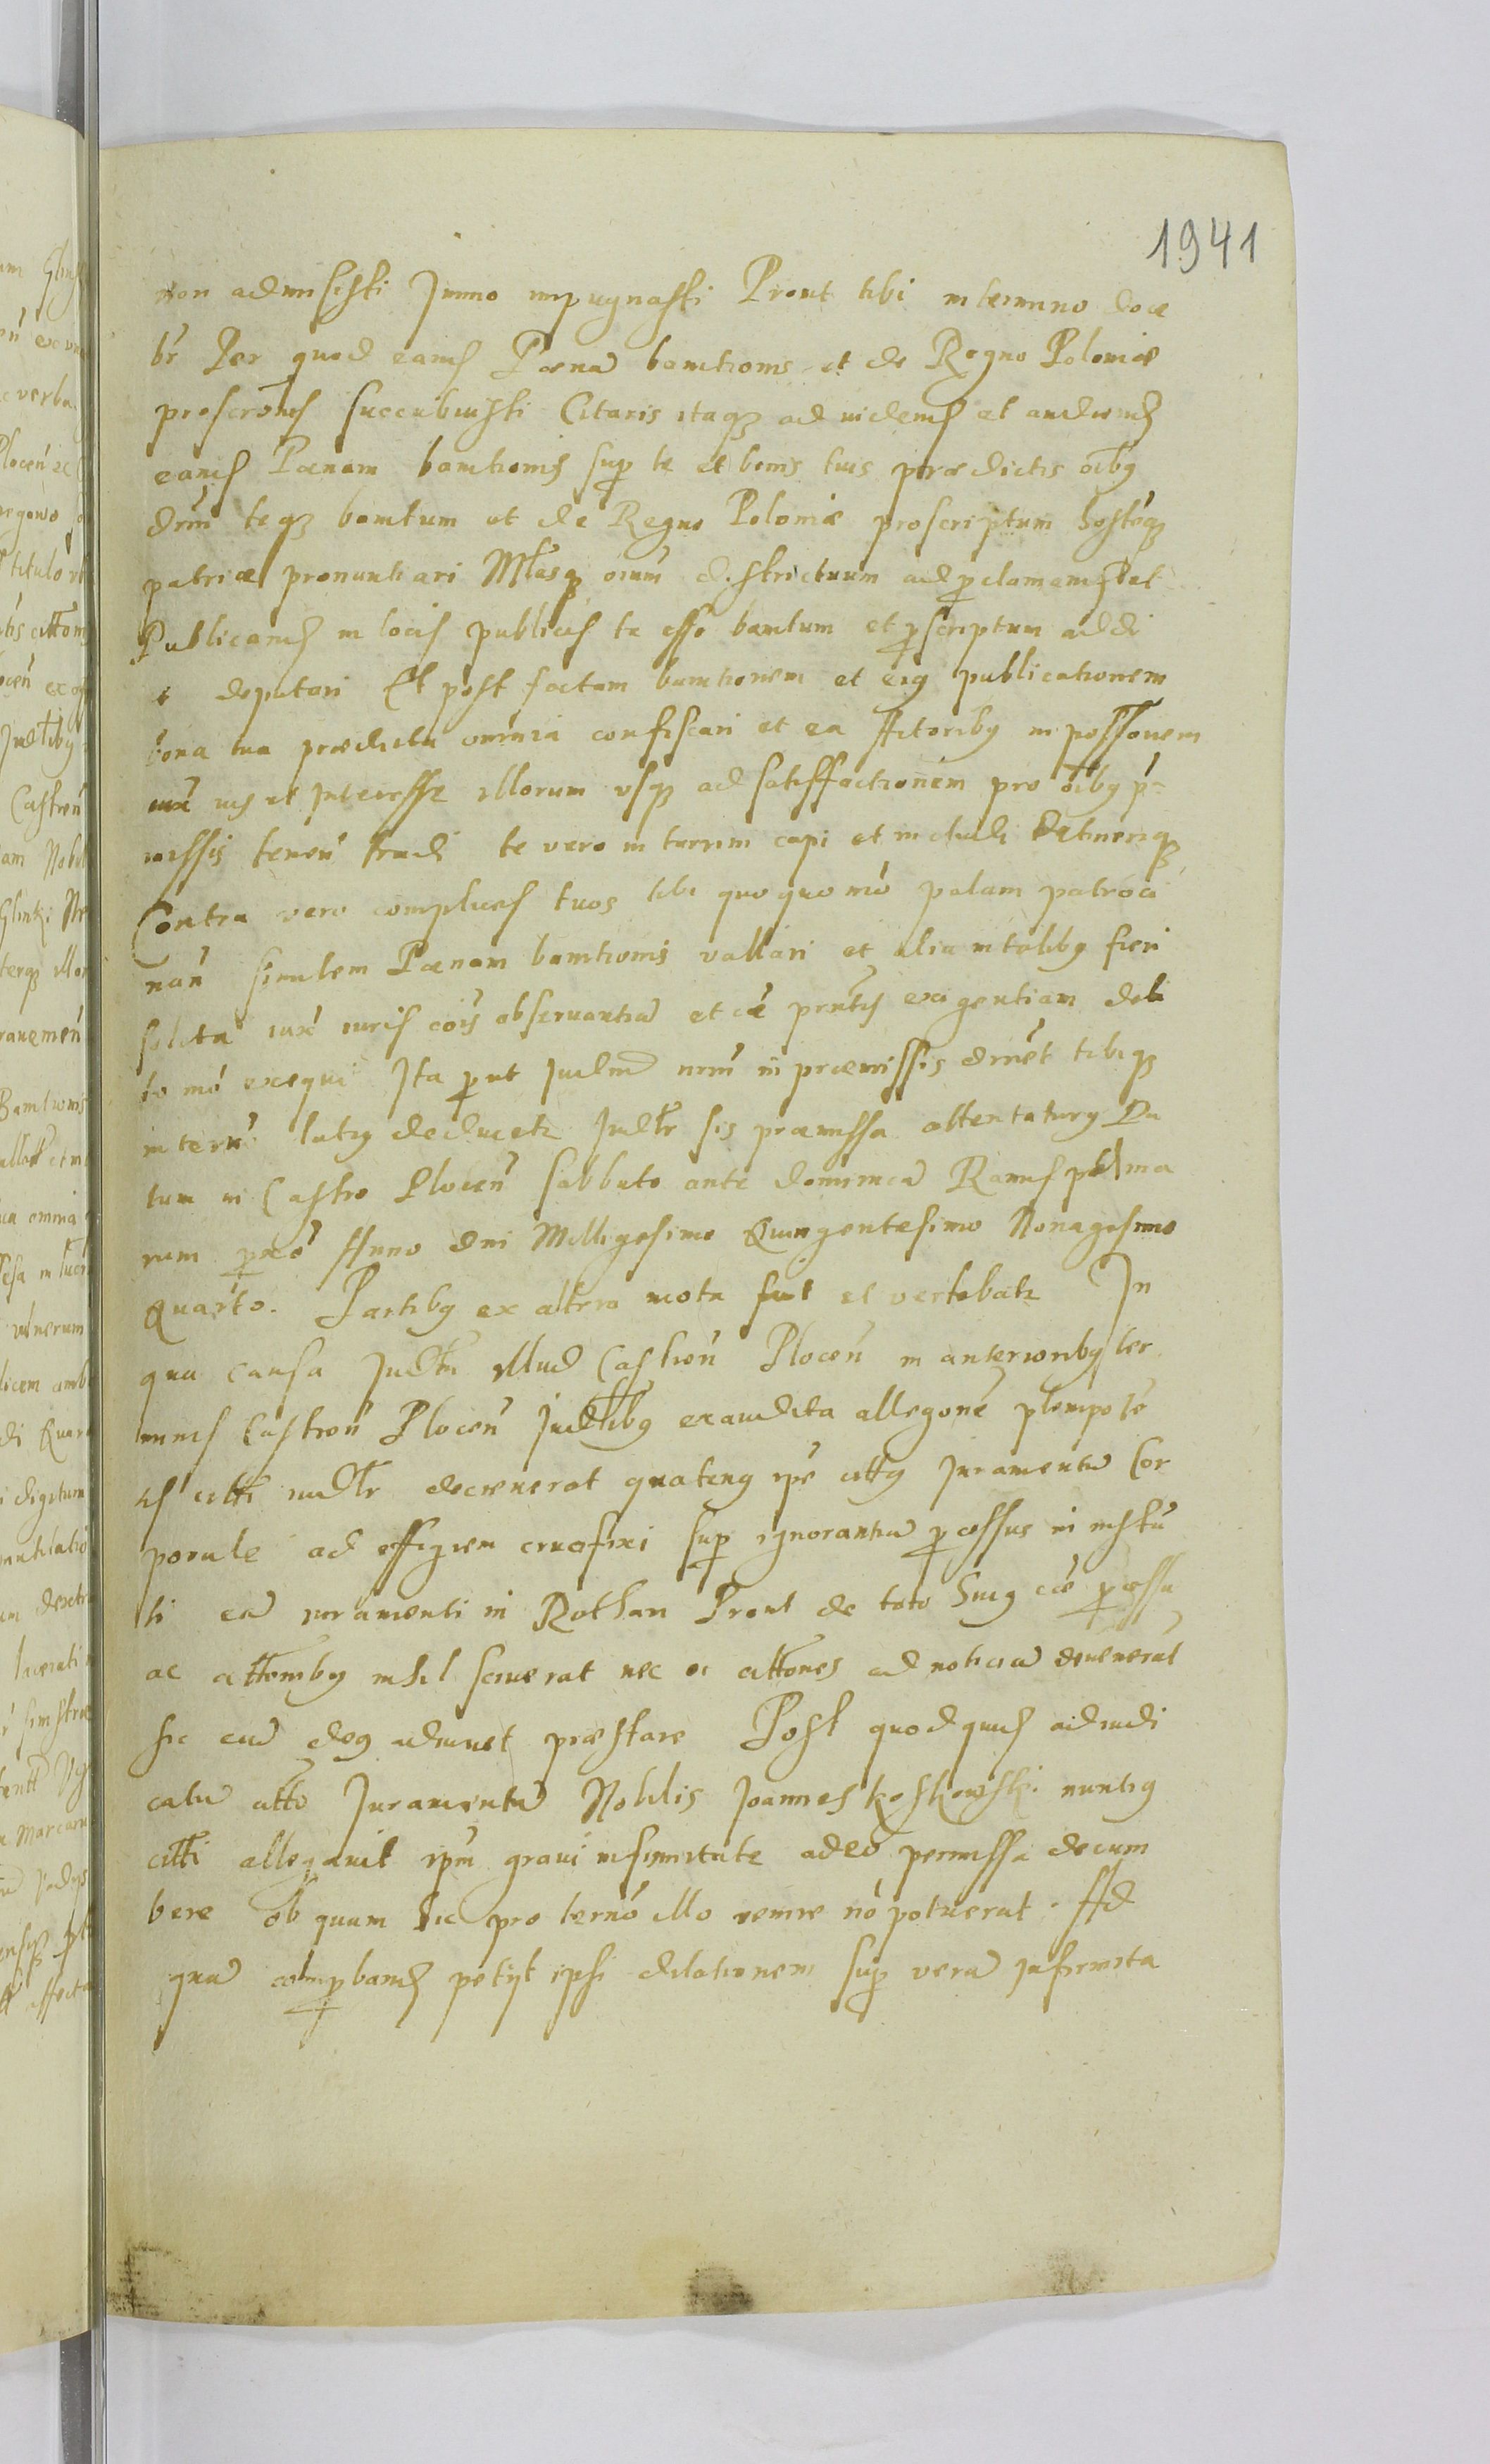 1941
non admisisti Immo impugnasti Prout tibi in termino doce
br̃ Per quod eand Pœnã bannitionis et de Regno Poloniæ
proscrõnis succubuisti Citaris itaq ad uidend et audiend
eand Pœnam bannitionis sup te et bonis tuis prædictis oĩbg
drm̃ teq bannitum et de Regno Poloniæ proscriptum hostẽq
patriæ pronuntiari Mtasq oium districtuum ad pclamand et
Publicand in locis publicis te esse bannitum et pscriptum addi
e deputari Et post factam bannitionem et eig publicationem
bona tua prædicta omnia confiscari et ea Actoribg in possõnem
iux̃ ius et Interesse illorum vsq ad satisfactionem pro oĩbg p̃
missis teneñ tradi te vero in turrim capi et includi detineriq
Contra vero complices tuos tibi quoquo mõ palam patroci
nañ similem Pœnam bannitionis vallari et alia in talibg fieri
solita iux̃ iuris cõis obseruantiã et cæ prñtis exigentiam debi
to mõ exequi Ita put Iudm nrm̃ in præmissis drñet tibiq
in terñ latig deducetr Iudtr sis præmissa attentaturg Da
tum in Castro Ploceñ Sabbato ante dominicã Ramispalma
rum pxẽ Anno dni Milligesimo Quingentesimo Nonagesimo
Quarto. Partibg ex altera mota fuit et vertebatr In
qua causa Iudm illud Castreñ Ploceñ in anterioribg ter
minis Castreñ Ploceñ Iudlibg exaudita allegõne plenipotẽ
tis citti iudtr decreuerat quateng ipe cittg Iuramentũ Cor
porale ad effigiem crucifixi sup ignorantiã pcessus in instũ
ti eã iuramenti in Rothan Prout de toto huig cæ pcessu
ac cittõnibg nihil sciuerat nec ei cittõnes ad noticiã deuenerũt
sic eũ deg adiuuet præstare Post quodquid adiudi
catũ citto Iuramentũ Nobilis Joannes koskowski nuntig
citti allegauit ipm graui infirmitate adeo permissã decum
bere ob quam hic pro terño illo venire nõ potuerat. Ad
quã comprband petijt ipsi dilationem sup vera infirmita